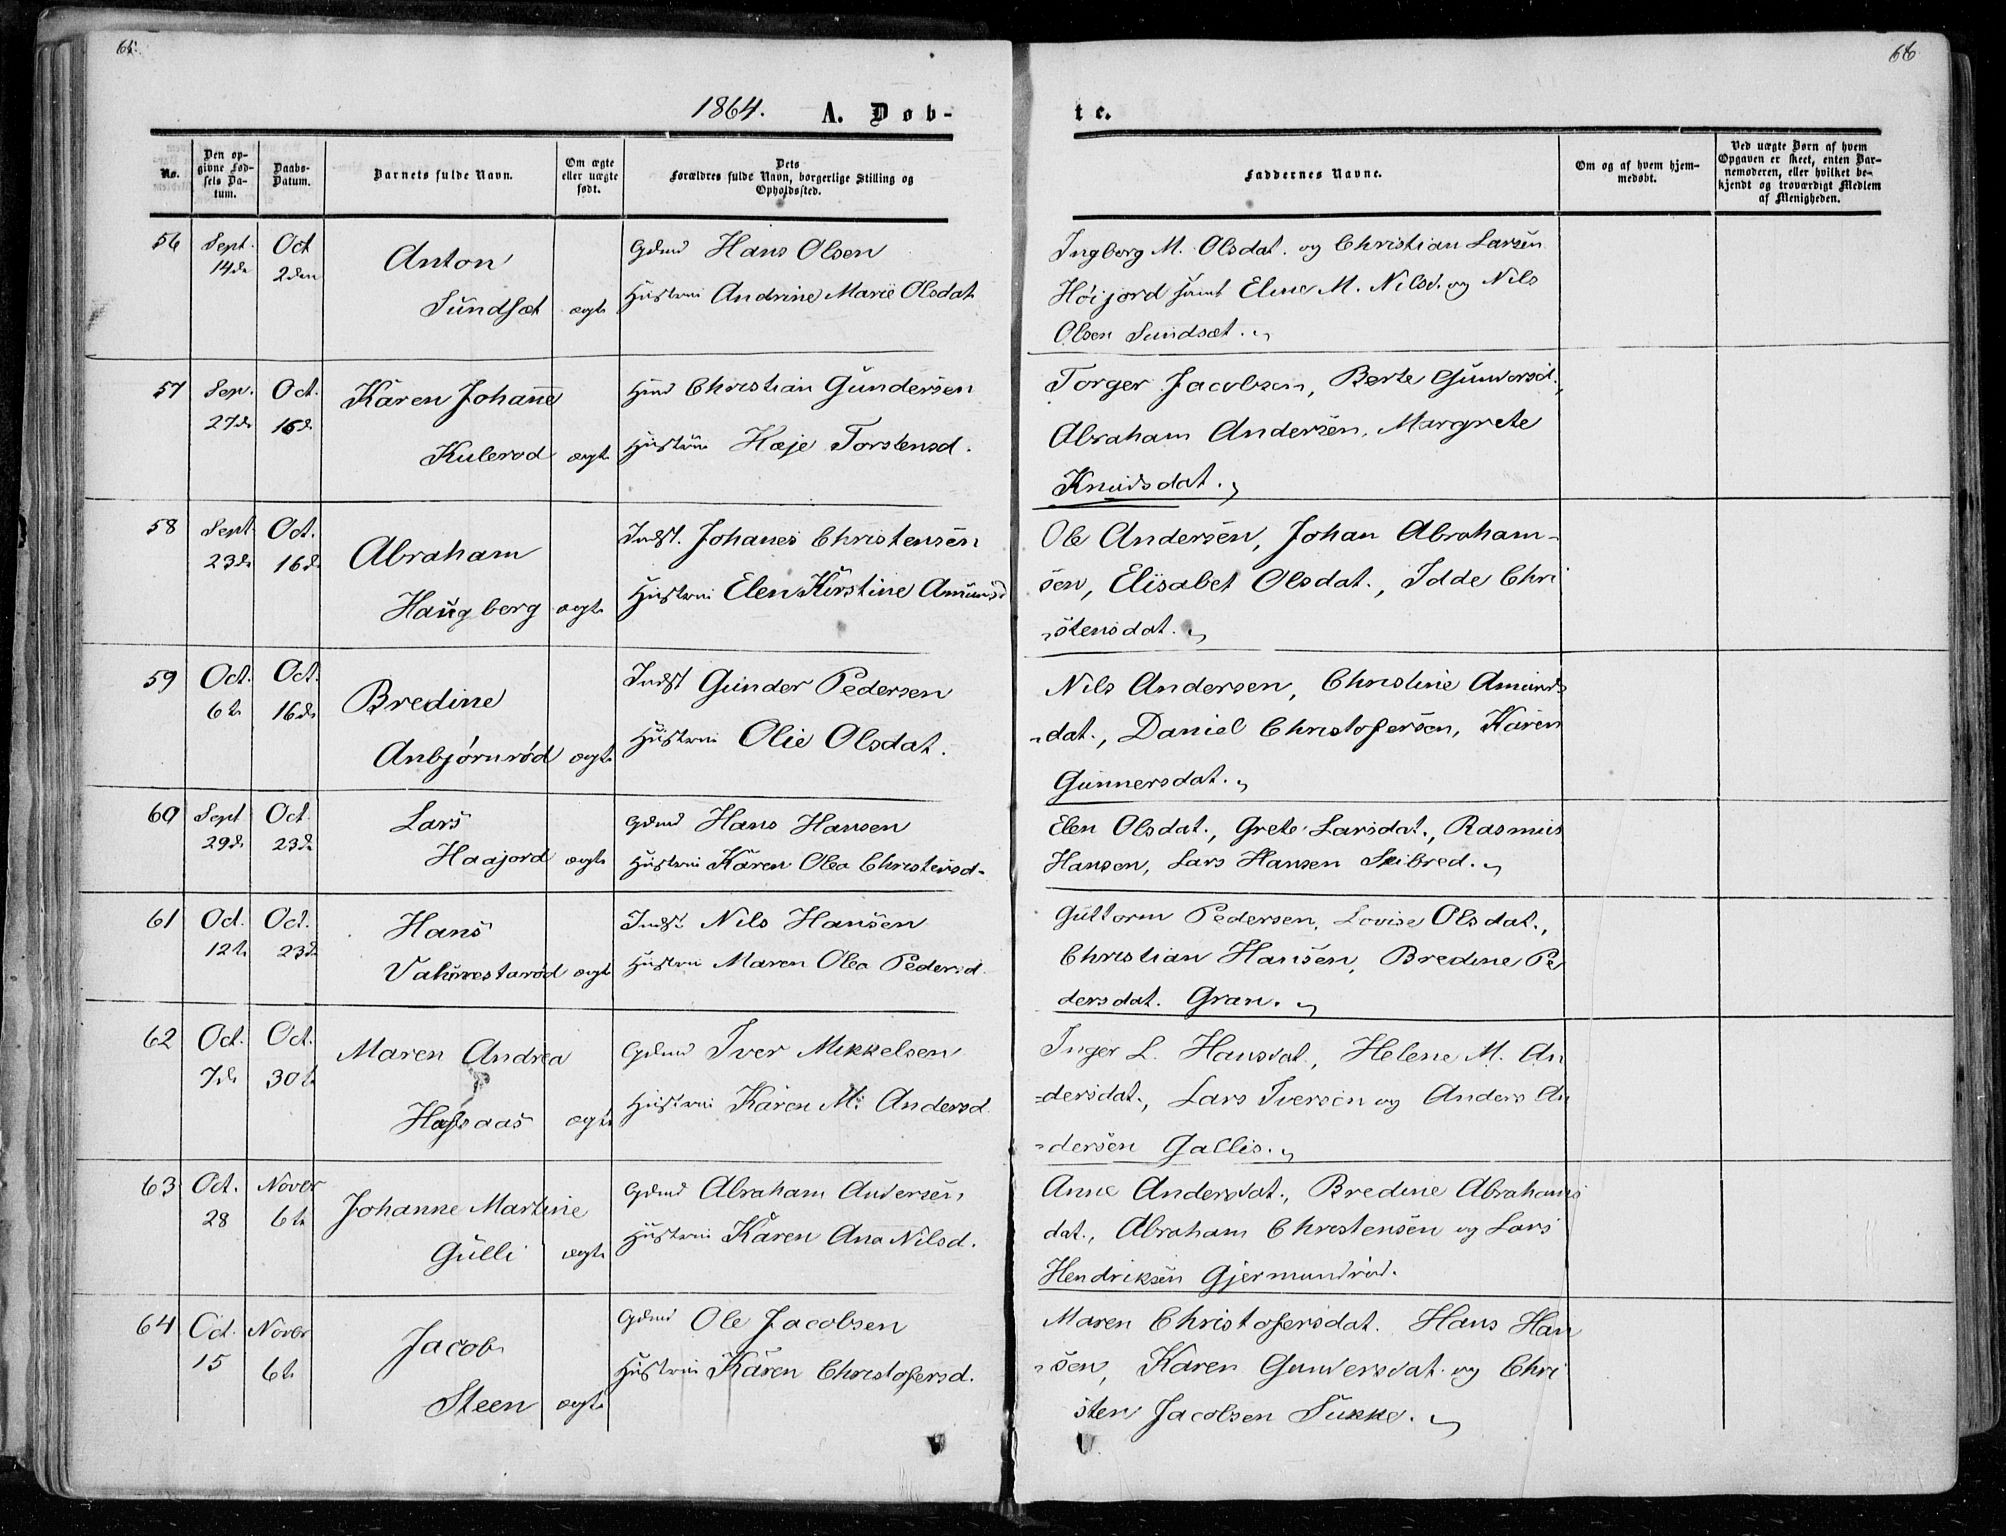 65.
66
1864. A. Døb-
te.
No.
Den op-
givne Fød-
sels Da-
tum.
Daabs-
Datum.
Barnets fulde Navn.
Om ægte
eller uægte
født.
Dets
Forældres fulde Navn, borgerlige Stilling og
Opholdssted.
Faddernes Navne.
Om og af hvem hjem-
medøbt.
Ved uægte Børn af hvem
Opgaven er skeet, enten Bar-
nemoderen, eller hvilket be-
kjendt og troværdigt Medlem
af Menigheden.
56 Sept. Oct Gdmd Hans Olsen Ingborg M. Olsdat. og Christian Larsen
14de 2den Anton
Sundset ægte Hustrui Andrine Marie Olsdat Höijord samt Elene M. Nilsd. og Nils
Olsen Sundsæt.
57 Sep. Oct. Karen Johanne Hmd Christian Gundersen Torger Jacobsen, Berte Gundersd.,
27de 16d. Kulerod ægte Hustrui Hæje Torstensd. Abraham Andersen, Margrete
Knudsdat.
58 Sept Oct. Indst. Johanes Christensen Ole Andersen, Johan Abraham-
23de 16de Abraham
Haugberg ægte Hustrui Elen Kirstine Amunsd sen, Elisabet Olsdat., Idde Chri
stensdat.
59 Oct. Oct. Bredine Indst Gunder Pedersen Nils Andersen, Christine Amunds
6te 16de Anbjørnrød ægte Hustrui Olie Olsdat. -dat., Daniel Christofersen, Karen
Gunnersdat.
60 Sept Oct. Lars Gdmd Hans Hansen Elen Olsdat., Grete Larsdat., Rasmus
29de 23de Haajord ægte Hustrui Karen Olea Christensd. Hansen, Lars Hansen Seibred.
61 Oct. Oct. Hans Indst Nils Hansen Guttorm Pedersen, Lovise Olsdat.,
12te 23de ægte Hustrui Maren Olea Pedersd. Christian Hansen, Bredine Pe
dersdat. Gran.
62 Oct. Oct. Maren Andrea Gdmd Iver Mikkelsen Inger L. Hansdat., Helene M. An
7de 30te ægte Hustrui Karen M. Andersd. -dersdat., Lars Iversen og Anders An
Hafsaas -dersen Gallis.
63 Oct. Novbr Johanne Martine Gdmd Abraham Andersen Anne Andersdat., Bredine Abrahams
28 6te Gulli ægte Hustrui Karen Ana Nilsd. dat., Abraham Christensen og Lars
Hendriksen Gjermundrød.
64 Oct. Novbr Jacob Gdmd Ole Jacobsen Maren Christofersdat. Hans Han
15 6te Steen ægte Hustrui Karen Christofersd. -sen, Karen Gundersdat. og Chri
sten Jacobsen Sukke.